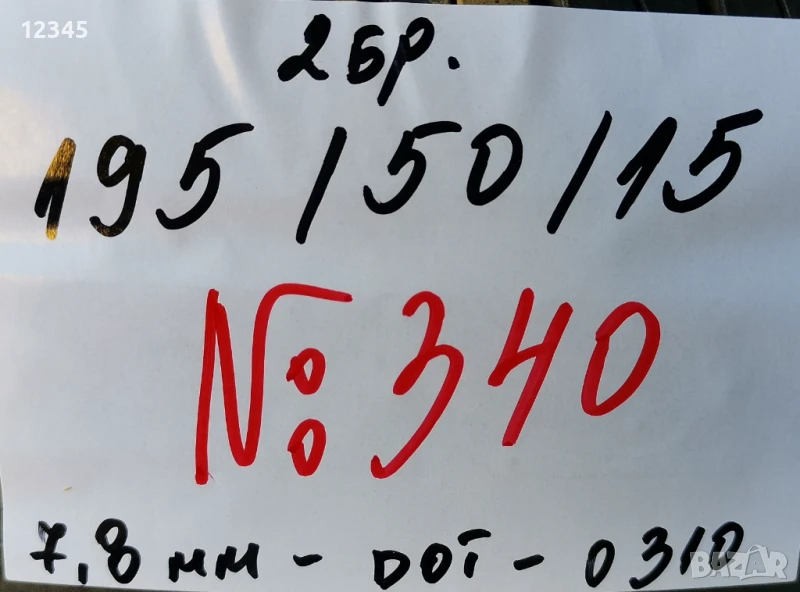 12345
2бр.
195/50/15
№340
7,8мм-DOT-0310
BAZAR